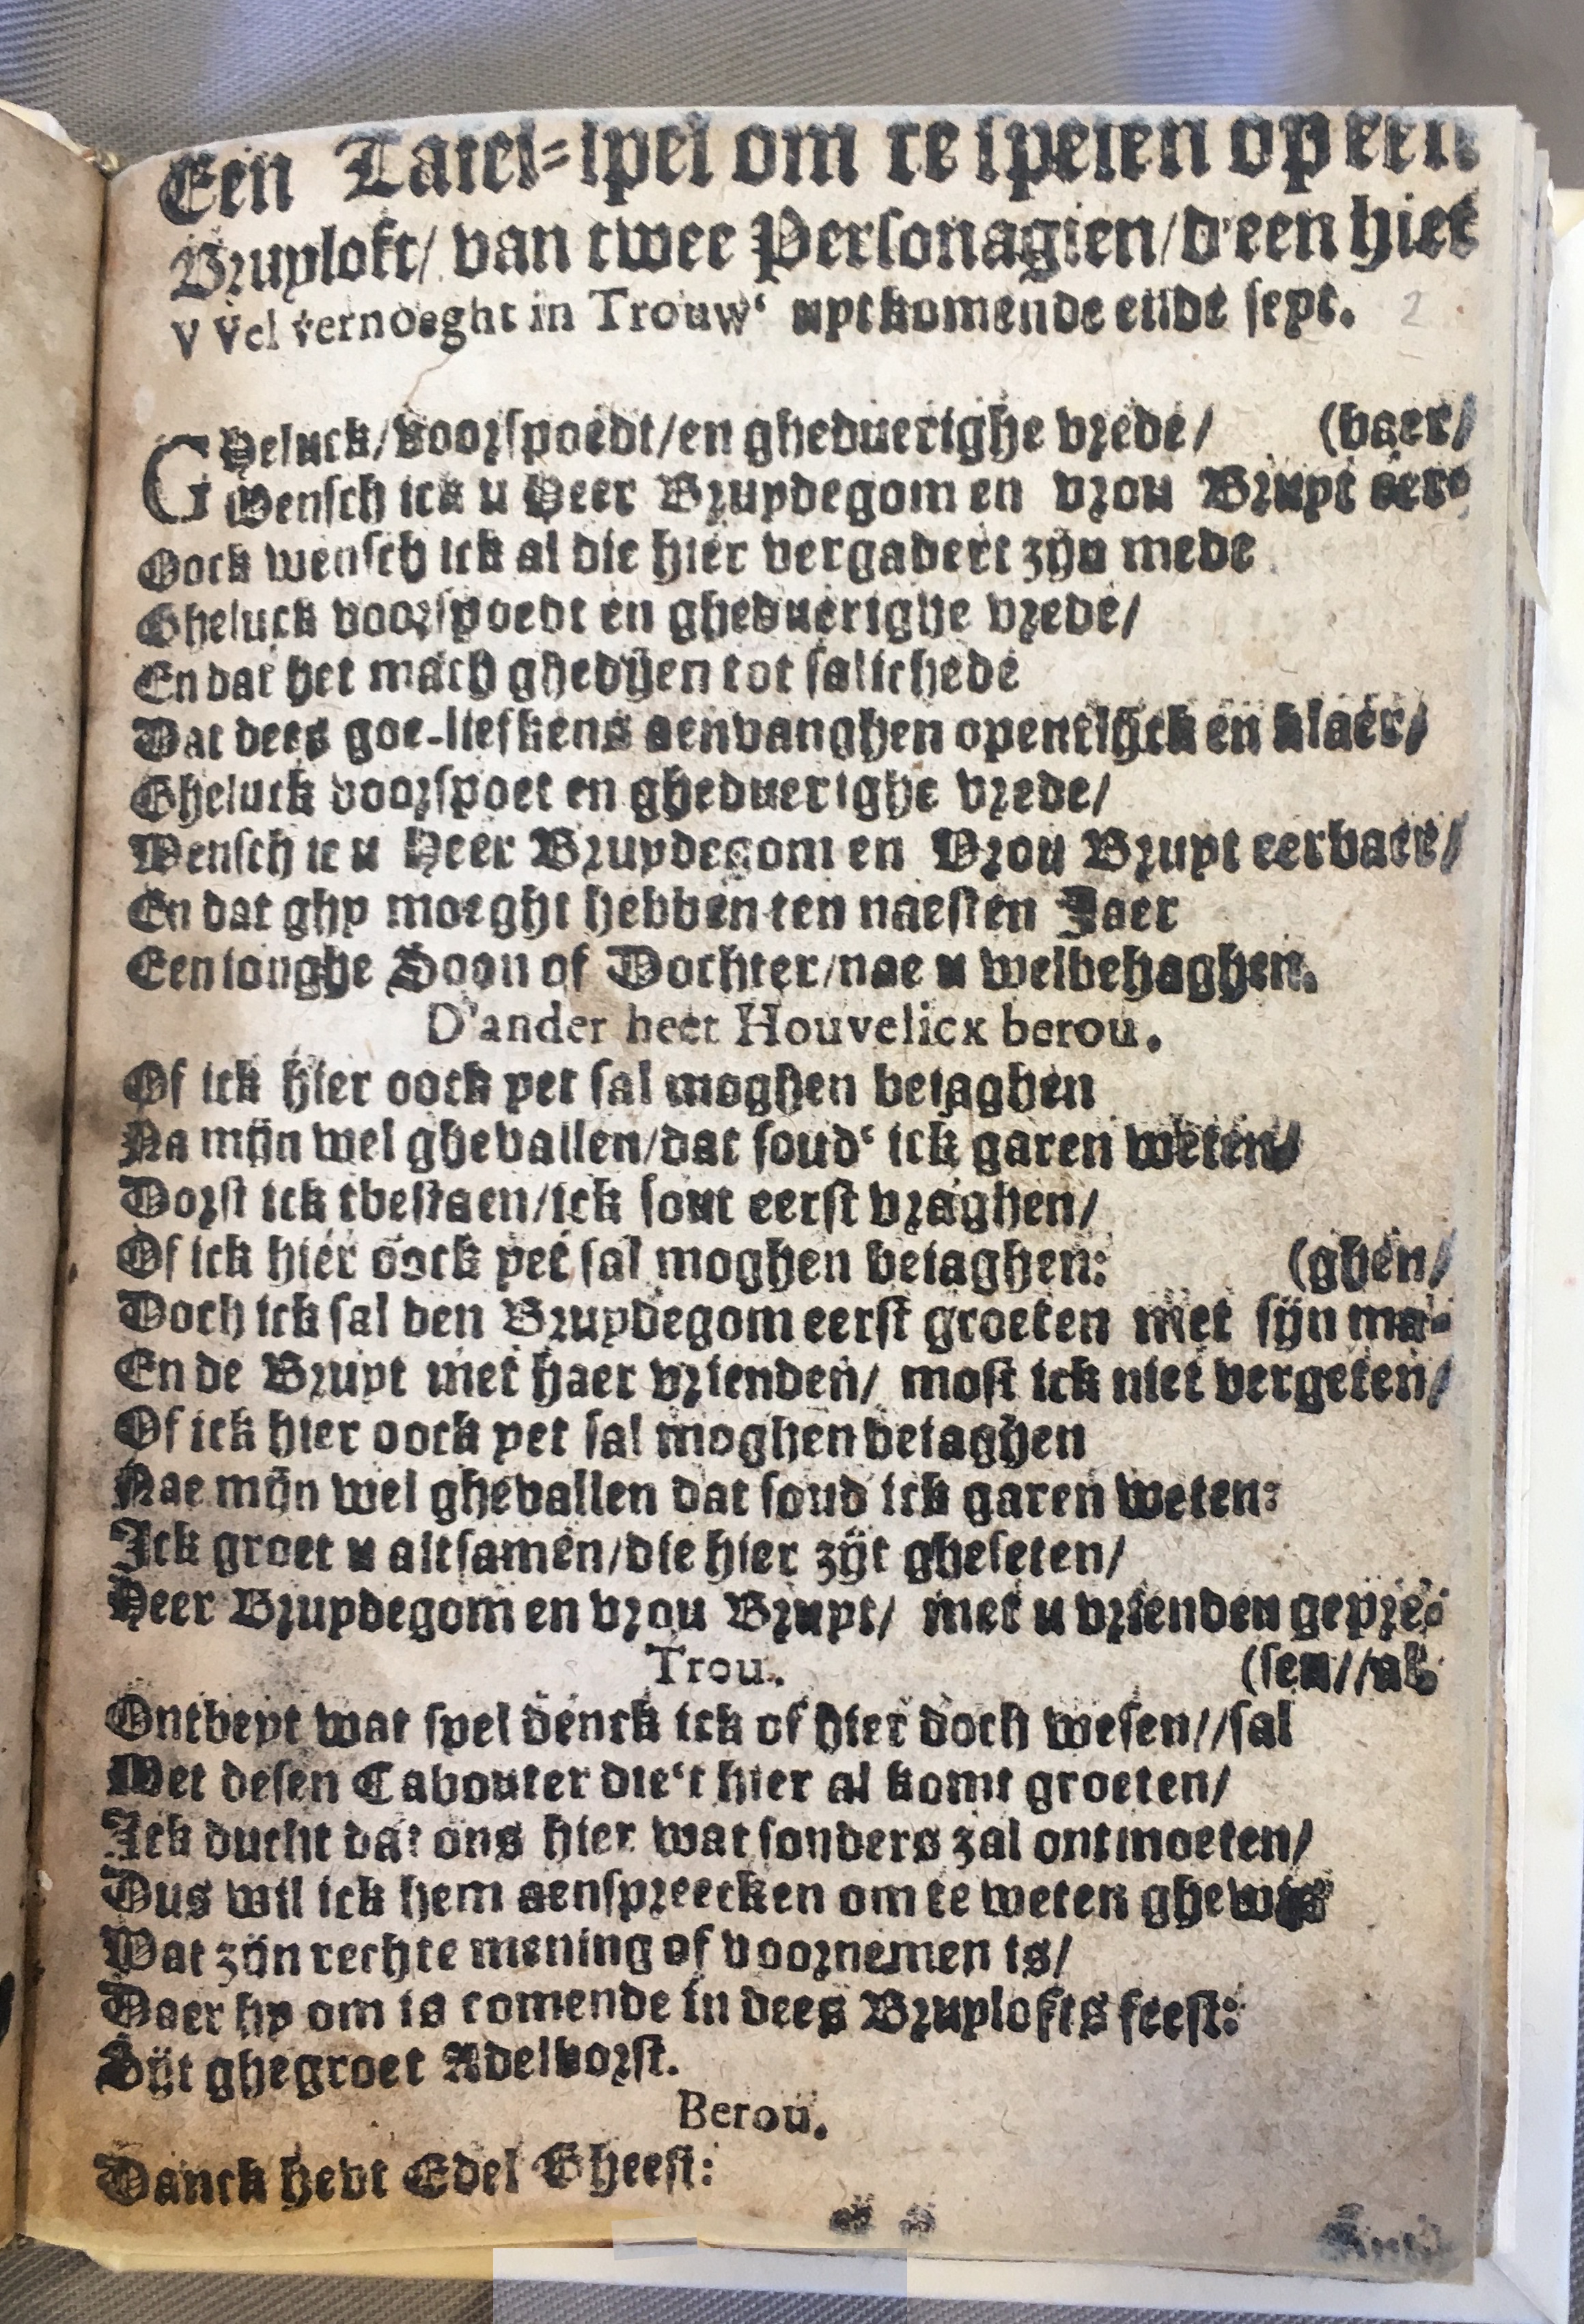 Een Tafel-spel om te spelen op een
Bruyloft/ van twee Personagien/ d'een hiet
VVel vernoeght in Trouw‘ uytkomende ende seyt. 2
GHeluck/ voorspoedt/ en gheduerighe vrede/ (baer/
Wensch ick u Heer Bruydegom en vrou Bruyt eer-
Oock wensch ick al die hier vergadert zijn mede
Gheluck voorspoedt en gheduerighe vrede/
En dat het mach ghedijen tot salichede
Dat dees goe-liefkens aenvanghen opentlijck en klaer/
Gheluck voorspoet en gheduerighe vrede/
Wensch ic u Heer Bruydegom en Vrou Bruyt eerbaer/
En dat ghy moeght hebben ten naesten Jaer
Een ionghe Soon of Dochter/ nae u welbehaghen.
D'ander heet Houvelicx berou.
Of ick hier oock yet sal moghen beiaghen
Na mijn wel ghevallen/ dat soud‘ ick garen weten/
Dorst ick tbestaen/ ick sout eerst vraghen/
Of ick hier oock yet sal moghen beiaghen: (ghen/
Doch ick sal den Bruydegom eerst groeten met sijn ma-
En de Bruyt met haer vrienden/ most ick niet vergeten/
Of ick hier oock yet sal moghen beiaghen
Nae mijn wel ghevallen dat soud ick garen weten:
Ick groet u altsamen/ die hier zijt gheseten/
Heer Bruydegom en vrou Bruyt/ met u vrienden gepre-
Trou. (sen//al.
Ontbeyt wat spel denck ick of hier doch wesen//sal
Met desen Cabouter die‘t hier al komt groeten/
Ick ducht dat ons hier wat sonders zal ontmoeten/
Dus wil ick hem aenspreecken om te weten ghewis
Wat zijn rechte mening of voornemen is/
Daer hy om is comende in dees Bruylofts feest:
Zijt ghegroet Adelborst.
Berou.
Danck hebt Edel Gheest: